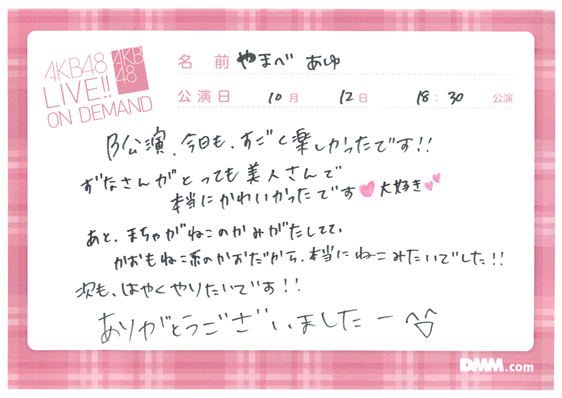 AKB48
LIVE!!
ON DEMAND
AKB
48
名前 やまべ あゆ
公演日 10月 12日 18:30 公演
B公演、今日も、すごく楽しかったです!!
ずなさんがとっても美人さんで
本当にかわいかったです 大好き
あと、まちゃがねこのかみがたしてて、
かおもねこ系のかおだから、本当にねこみたいでした!!
次も、はやくやりたいです!!
ありがとうございましたー
DMM.com